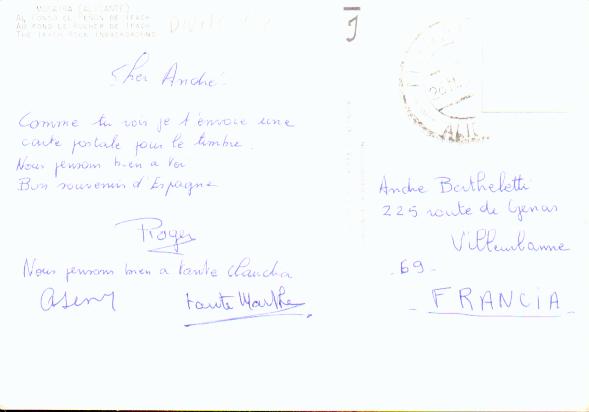 MORAIRA (ALICANTE)
AL FONDO EL PEÑON DE IFACH
AU FOND LE ROCHER DE IFACH
THE IFACH ROCK IN BACKGROUND
Cher André.
Comme tu vois je t'envoie une
carte postale pour le timbre.
Nous pensons bien a toi
Bon souvenir d'Espagne
Roger
Nous pensons bien a tante Claudia
tante Marthe
ALIC
Andre Bertheletti
225 route de Genas
Villeurbanne
- 69 -
- FRANCIA -